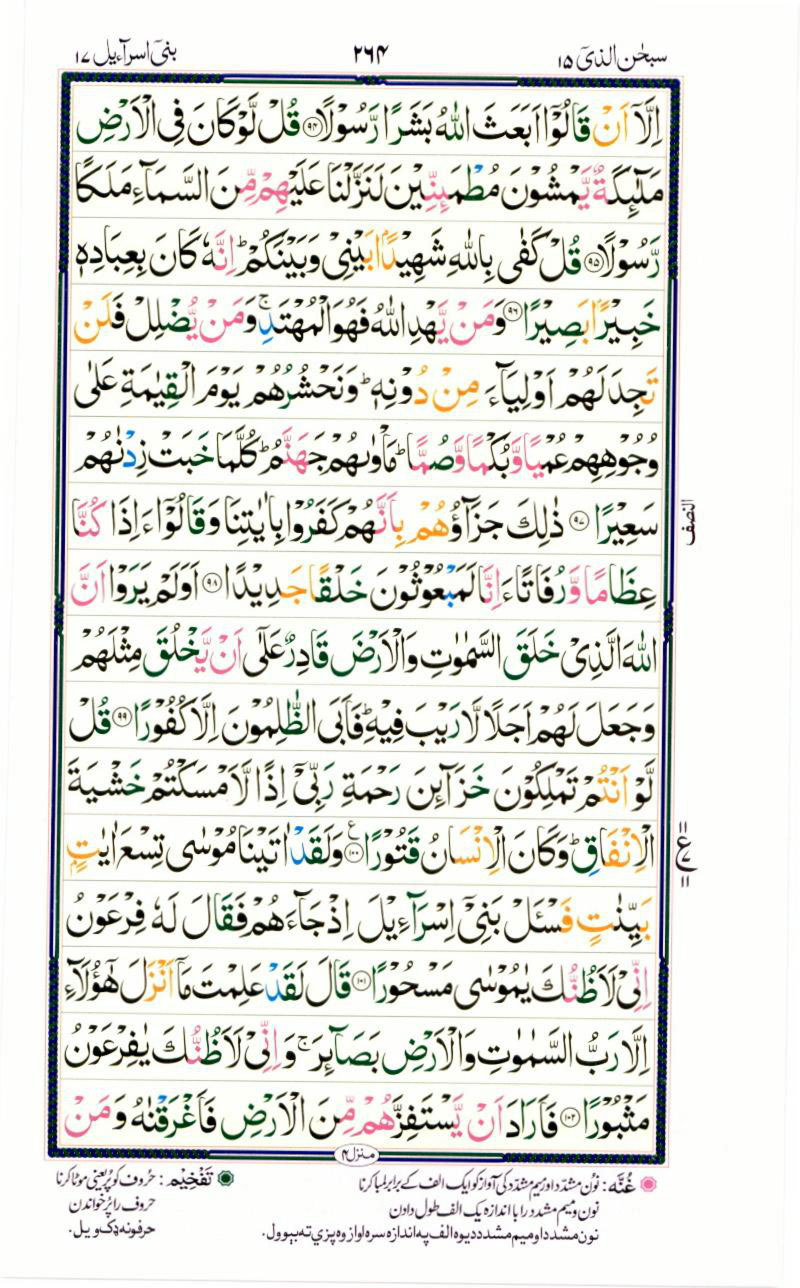 سبحٰن الذیٓ ۱۵
۲۶۴
بنیٓ اسرآءیل ۱۷
اِلَّاۤ اَنْ قَالُوْۤا اَبَعَثَ اللّٰهُ بَشَرًا رَّسُوْلًا ﴿۹۴﴾ قُلْ لَّوْ كَانَ فِی الْاَرْضِ
مَلٰٓئِكَةٌ یَّمْشُوْنَ مُطْمَىِٕنِّیْنَ لَنَزَّلْنَا عَلَیْهِمْ مِّنَ السَّمَآءِ مَلَكًا
رَّسُوْلًا ﴿۹۵﴾ قُلْ كَفٰی بِاللّٰهِ شَهِیْدًۢا بَیْنِیْ وَ بَیْنَكُمْ ؕ اِنَّهٗ كَانَ بِعِبَادِهٖ
خَبِیْرًۢا بَصِیْرًا ﴿۹۶﴾ وَ مَنْ یَّهْدِ اللّٰهُ فَهُوَ الْمُهْتَدِ ۚ وَ مَنْ یُّضْلِلْ فَلَنْ
تَجِدَ لَهُمْ اَوْلِیَآءَ مِنْ دُوْنِهٖ ؕ وَ نَحْشُرُهُمْ یَوْمَ الْقِیٰمَةِ عَلٰی
وُجُوْهِهِمْ عُمْیًا وَّ بُكْمًا وَّ صُمًّا ؕ مَاْوٰىهُمْ جَهَنَّمُ ؕ كُلَّمَا خَبَتْ زِدْنٰهُمْ
سَعِیْرًا ﴿۹۷﴾ ذٰلِكَ جَزَآؤُهُمْ بِاَنَّهُمْ كَفَرُوْا بِاٰیٰتِنَا وَ قَالُوْۤا ءَاِذَا كُنَّا
النصف
عِظَامًا وَّ رُفَاتًا ءَاِنَّا لَمَبْعُوْثُوْنَ خَلْقًا جَدِیْدًا ﴿۹۸﴾ اَوَ لَمْ یَرَوْا اَنَّ
اللّٰهَ الَّذِیْ خَلَقَ السَّمٰوٰتِ وَ الْاَرْضَ قَادِرٌ عَلٰۤی اَنْ یَّخْلُقَ مِثْلَهُمْ
وَ جَعَلَ لَهُمْ اَجَلًا لَّا رَیْبَ فِیْهِ ؕ فَاَبَی الظّٰلِمُوْنَ اِلَّا كُفُوْرًا ﴿۹۹﴾ قُلْ
لَّوْ اَنْتُمْ تَمْلِكُوْنَ خَزَآىِٕنَ رَحْمَةِ رَبِّیْۤ اِذًا لَّاَمْسَكْتُمْ خَشْیَةَ
الْاِنْفَاقِ ؕ وَ كَانَ الْاِنْسَانُ قَتُوْرًا ﴿۱۰۰﴾ ع وَ لَقَدْ اٰتَیْنَا مُوْسٰی تِسْعَ اٰیٰتٍۭ
بَیِّنٰتٍ فَسْـَٔلْ بَنِیْۤ اِسْرَآءِیْلَ اِذْ جَآءَهُمْ فَقَالَ لَهٗ فِرْعَوْنُ
اِنِّیْ لَاَظُنُّكَ یٰمُوْسٰی مَسْحُوْرًا ﴿۱۰۱﴾ قَالَ لَقَدْ عَلِمْتَ مَاۤ اَنْزَلَ هٰۤؤُلَآءِ
اِلَّا رَبُّ السَّمٰوٰتِ وَ الْاَرْضِ بَصَآىِٕرَ ۚ وَ اِنِّیْ لَاَظُنُّكَ یٰفِرْعَوْنُ
مَثْبُوْرًا ﴿۱۰۲﴾ فَاَرَادَ اَنْ یَّسْتَفِزَّهُمْ مِّنَ الْاَرْضِ فَاَغْرَقْنٰهُ وَ مَنْ
منزل۴
غُنَّه: نُون مشدّد اور میم مشدّد کی آواز کو ایک الف کے برابر لمبا کرنا
نون و میم مشدد را با اندازه یک الف طول دادن
نون مشدد او میم مشدد دیوه الف په اندازه سره اواز وه پزې ته بېوول.
تَفْخِیْم: حُروف کو پُر یعنی موٹا کرنا
حروف را پُر خواندن
حرفونه ډک ویل.